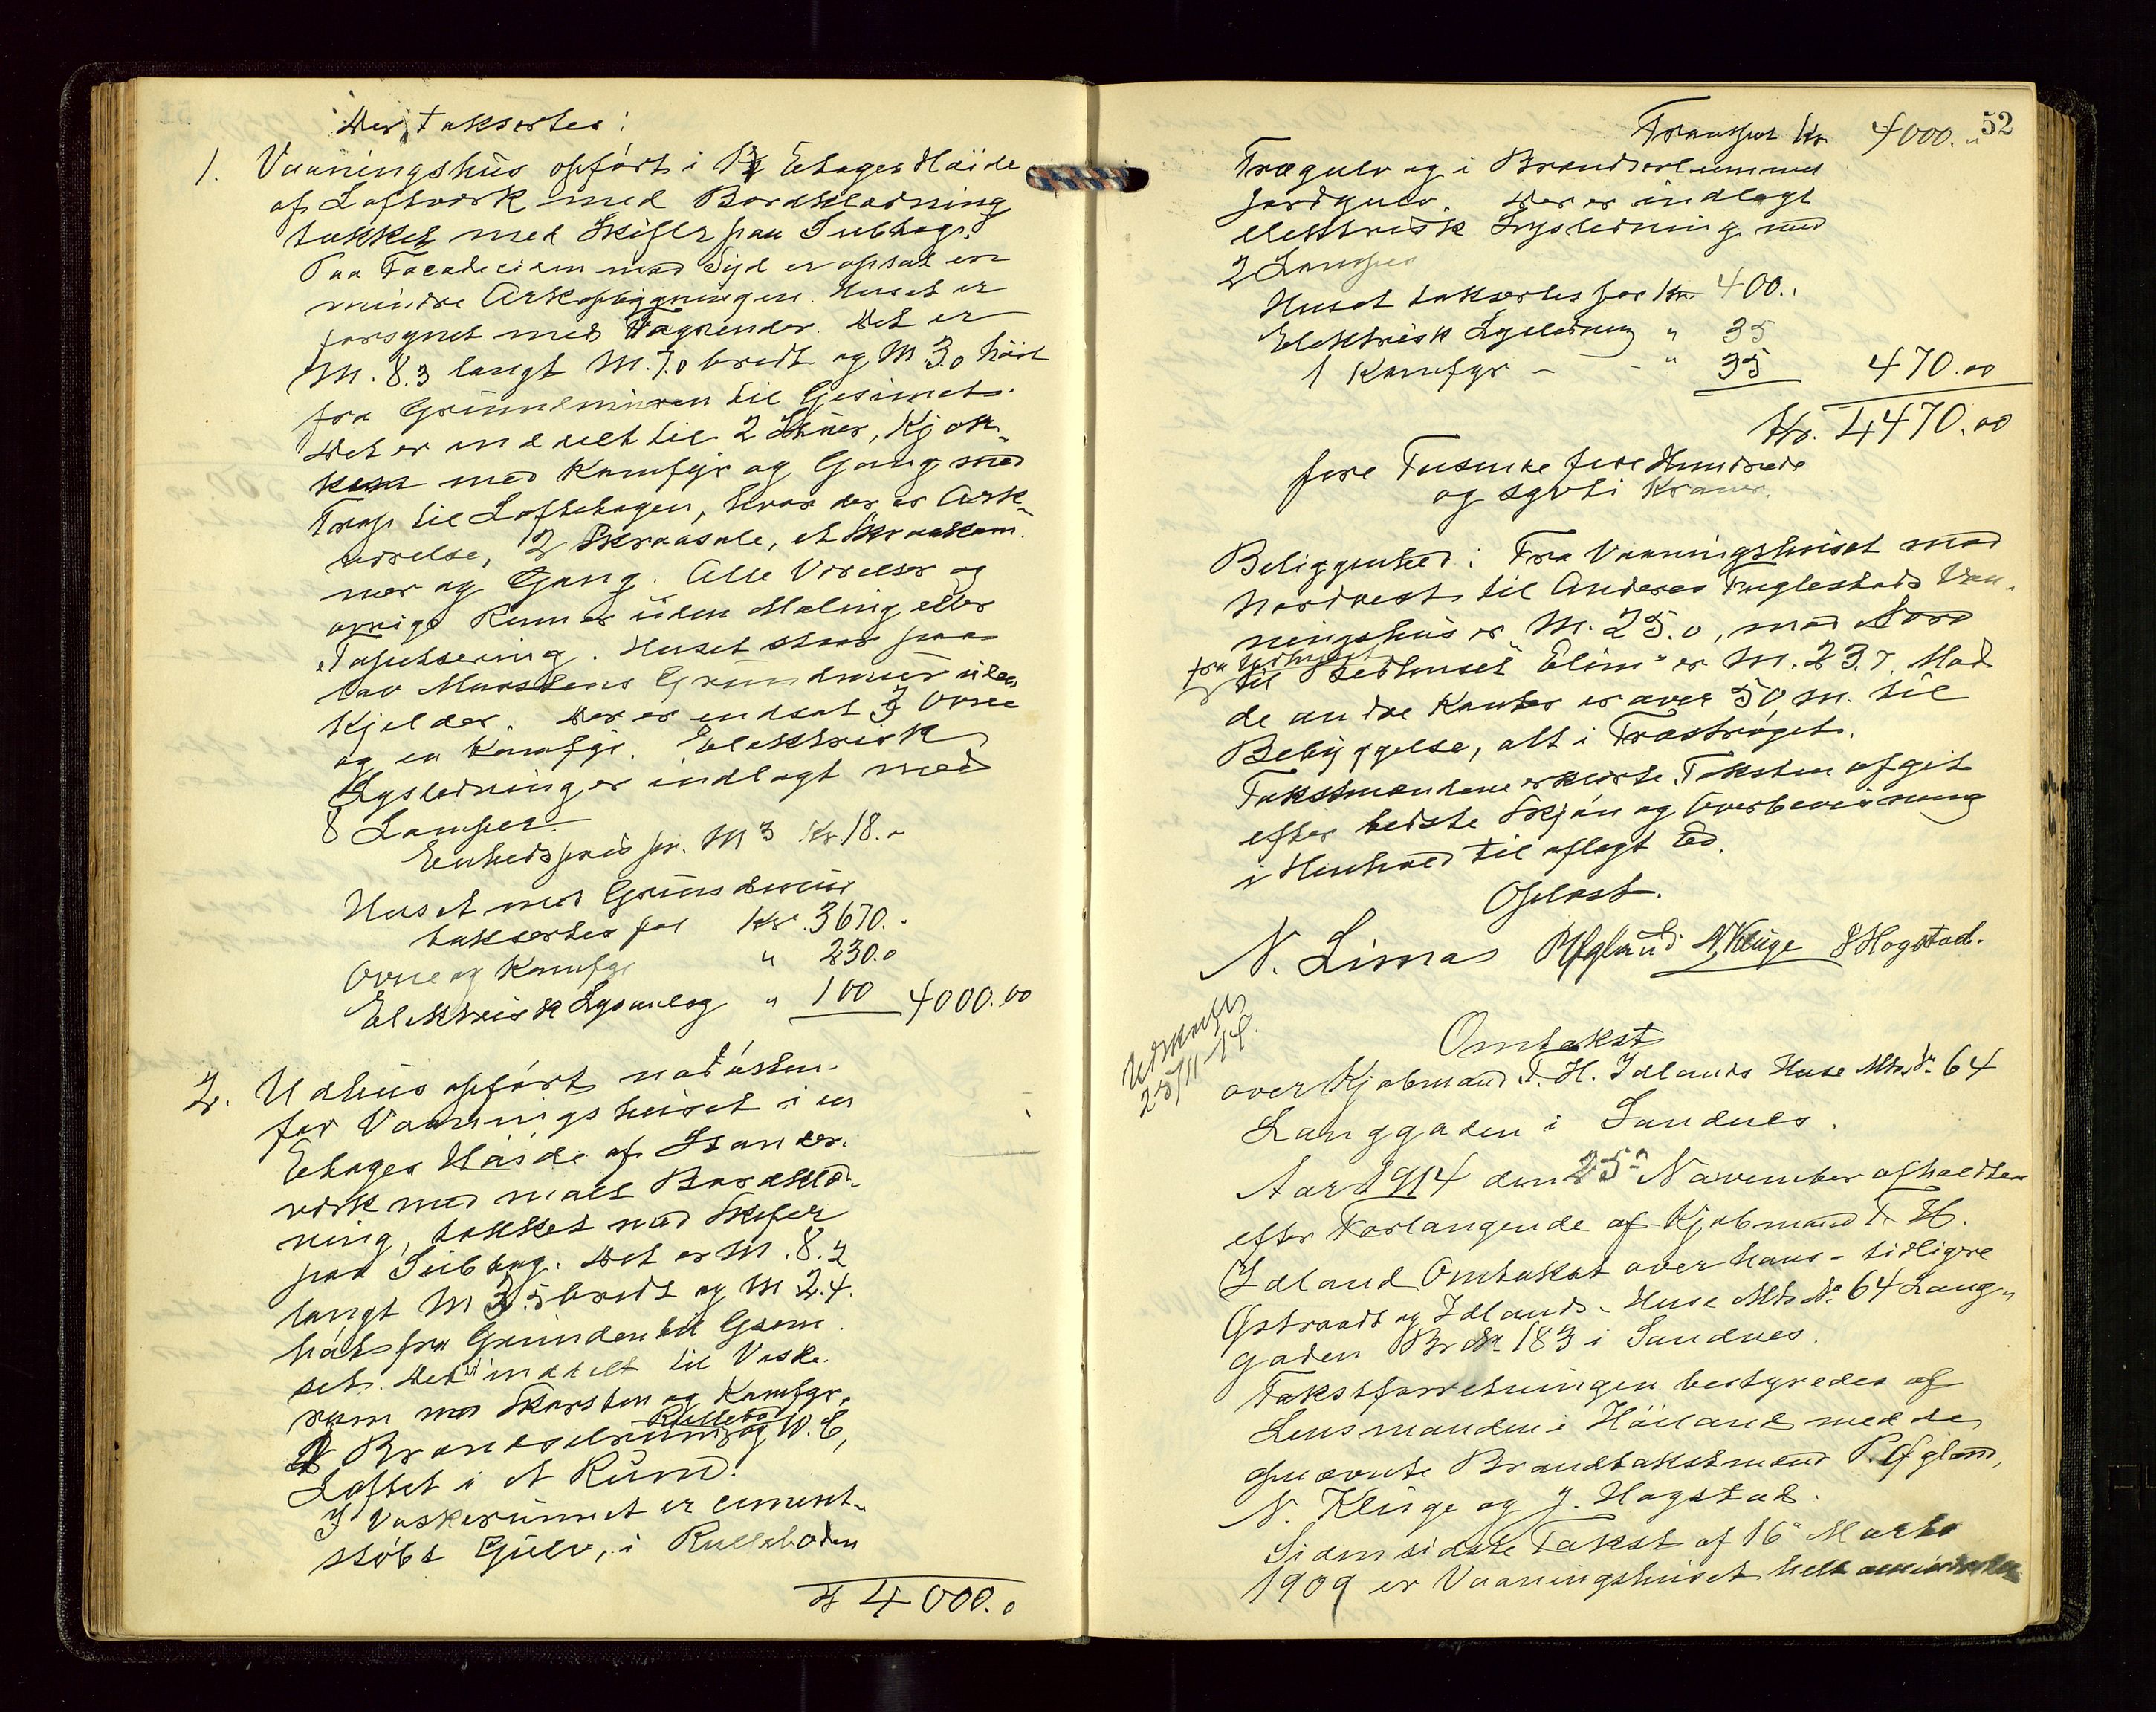 Der taksertes:
1. Vaaningshus opført i 1½ Etages Høide
af Laftverk med Bordklædning
tækket med Skifer paa Subtag.
Paa Facadesiden mod Syd er opsat en
mindre Arkopbygningen. Huset er
forsynet med Tagrender. Det er
M. 8.3 langt M. 7.0 bredt og M 3.0 høit
fra Grundmuren til Gesimset.
Det er inddelt til 2 Stuer, Kjøk-
ken med Komfyr og Gang med
Trap til Loftetagen, hvor der er Ark-
værelse, 2 Skraasale, et Skraakam-
mer og Gang. Alle Værelser og
øvrige Rum er uden Maling eller
Tapetsering. Huset staar paa
lav Murstens Grundmur uden
Kjelder. Der er indsat 3 Ovne
og en Komfyr. Elektrisk
Lysledning er indlagt med
8 Lamper.
Enhedspris pr. M3 Kr. 18.
Huset med Grundmur
taksertes for Kr. 3670.
Ovne og Komfyr " 230.0
Elektrisk Lysanlæg " 100 4000.00
2. Udhus opført nordøsten-
for Vaaningshuset i en
Etages Høide af Stander-
verk med malt Bordklæd-
ning, tækket med Skifer
paa Subtag. Det er M. 8.2
langt M 3.5 bredt og M 2.4.
høit fra Grunden til Gesim-
set. Det er inddelt til Vaske-
rum med Skorsten og Komfyr,
Rullebod
Brændselrum og W.C,
Loftet i et Rum.
I Vaskerummet er cement-
støbt Gulv, i Rulleboden
Kr 4000.0
52
Transport Kr. 4000.
Trægulv og i Brændselrummet
Jordgulv. Der er indlagt
elektrisk Lysledning med
2 Lamper
Huset taksertes for Kr. 400.
Elektrisk Lysledning " 35
1 Komfyr - - " 35 470.00
Kr. 4470.00
fire Tusinde fire Hundrede
og sytti Kroner.
Beliggenhed: Fra Vaaningshuset mod
Nordvest til Anders Fuglestads Vaa-
ningshus er M. 25.0, mod Nord
fra Udhuset
til Bedhuset "Elim" er M. 23.7. Mod
de andre Kanter er over 50 M. til
Bebyggelse, alt i Træstrøget.
Takstmændene erklærte Taksten afgit
efter bedste Skjøn og Overbevisning
i Henhold til aflagt Ed.
Oplæst.
N. Limas P Ofglund N. Kluge J Hogstad.
Udskrift
25/11-14.
Omtakst
over Kjøbmand T. H. Idlands Huse Mtr. No 64
Langgaden i Sandnes.
Aar 1914 den 25 November afholdtes
efter Forlangende af Kjøbmand T. H.
Idland Omtakst over hans - tidligere
Gstraadt og Idlands - Huse Mtr No 64 Lang-
gaden Br No 183 i Sandnes.
Takstforretningen bestyredes af
Lensmanden i Høiland med de
opnævnte Brandtakstmænd P. Ofglænd,
N. Kluge og J. Hogstad.
Siden sidste Takst af 16 Marts
1909 er Vaaningshuset helt